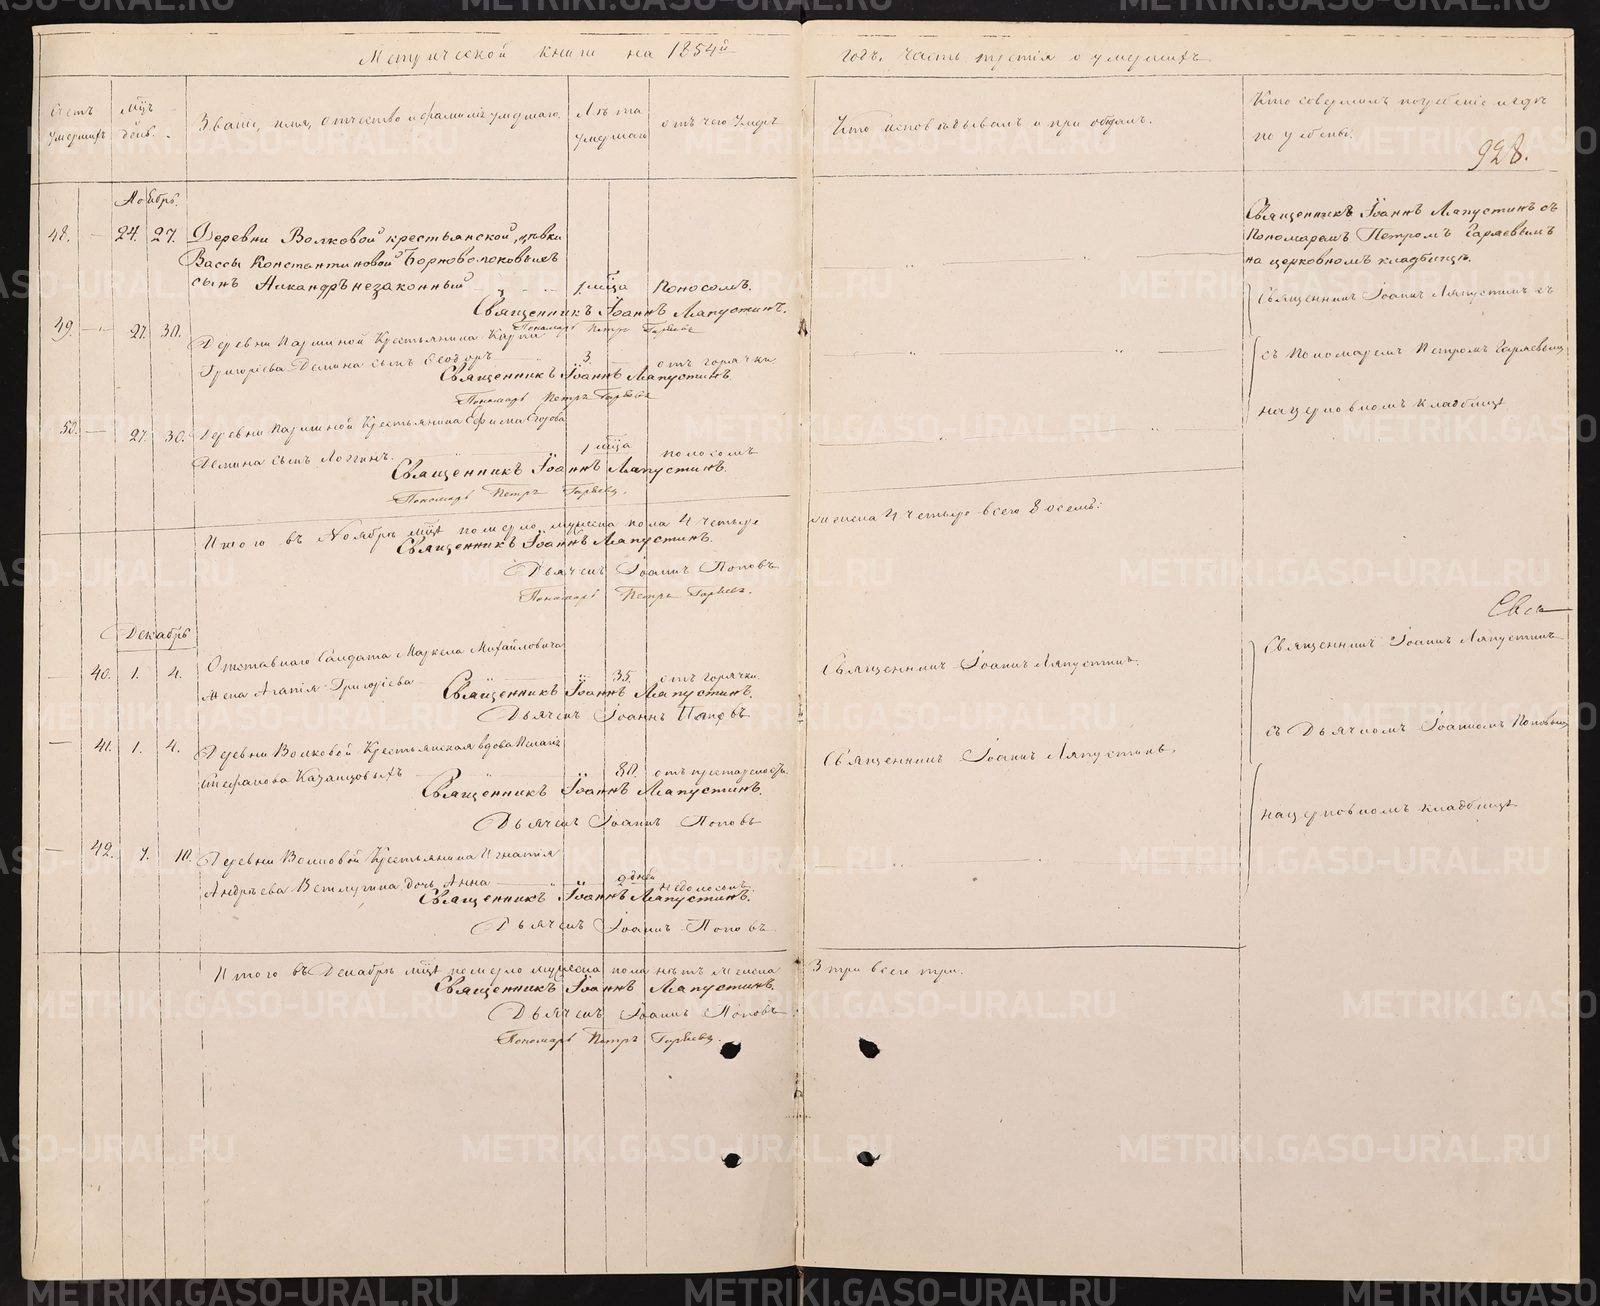 Метрической книги на 1854й
годъ. Часть третія о умершихъ
Счетъ умершихъ
Мцъ день.
Званіе, имя, отчество и фамилія умершаго.
Лѣта умершаго
отъ чего умеръ
Кто исповѣдывалъ и пріобщалъ.
Кто совершалъ погребеніе и гдѣ
погребены.
928.
Ноябрь.
48. — 24. 27. Деревни Волковой крестьянской дѣвки
Вассы Константиновой
сынъ Александръ незаконный 1 мѣца Поносомъ.
Священникъ Іоаннъ Лапустинъ.
Пономарь Петръ Гаряевъ
Священникъ Іоаннъ Лапустинъ съ
Пономаремъ Петромъ Гаряевымъ
на церковномъ кладбищѣ.
49. — 27. 30. Деревни Паршиной Крестьянина Карпа
Григорьева Демина сынъ Ѳеодоръ 3. отъ горячки
Священникъ Іоаннъ Лапустинъ.
Пономарь Петръ Гаряевъ
Священникъ Іоаннъ Лапустинъ съ
съ Пономаремъ Петромъ Гаряевымъ
на церковномъ кладбищѣ
50. — 27. 30. Деревни Паршиной Крестьянина Ефима Егорова
Демина сынъ Логгинъ. 1 мѣца поносомъ
Священникъ Іоаннъ Лапустинъ.
Пономарь Петръ Гаряевъ.
Итого въ Ноябрѣ мцѣ померло мужеска пола 4 четыре
женска 4 четыре всего 8 осемь.
Священникъ Іоаннъ Лапустинъ.
Дьячекъ Іоаннъ Поповъ
Пономарь Петръ Гаряевъ.
Декабрь
— 40. 1. 4. Отставнаго Солдата Маркела Михайловича
жена Агапія Григорьева 35. отъ горячки
Священникъ Іоаннъ Лапустинъ.
Дьячекъ Іоаннъ Поповъ
Священникъ Іоаннъ Лапустинъ.
Священникъ Іоаннъ Лапустинъ
съ Дьячкомъ Іоанномъ Поповымъ
на церковномъ кладбищѣ
— 41. 1. 4. Деревни Волковой Крестьянская вдова Пелагія
Стефанова Казанцовыхъ 80. отъ престарелости
Священникъ Іоаннъ Лапустинъ.
Дьячекъ Іоаннъ Поповъ
Священникъ Іоаннъ Лапустинъ.
— 42. 7. 10. Деревни Волковой Крестьянина Игнатія
Андреева Ветлугина дочь Анна дней недоноскомъ
Священникъ Іоаннъ Лапустинъ.
Дьячекъ Іоаннъ Поповъ
Итого въ Декабрѣ мцѣ померло мужеска пола нѣтъ женска
3 три всего три.
Священникъ Іоаннъ Лапустинъ.
Дьячекъ Іоаннъ Поповъ
Пономарь Петръ Гаряевъ.
METRIKI.GASO-URAL.RU